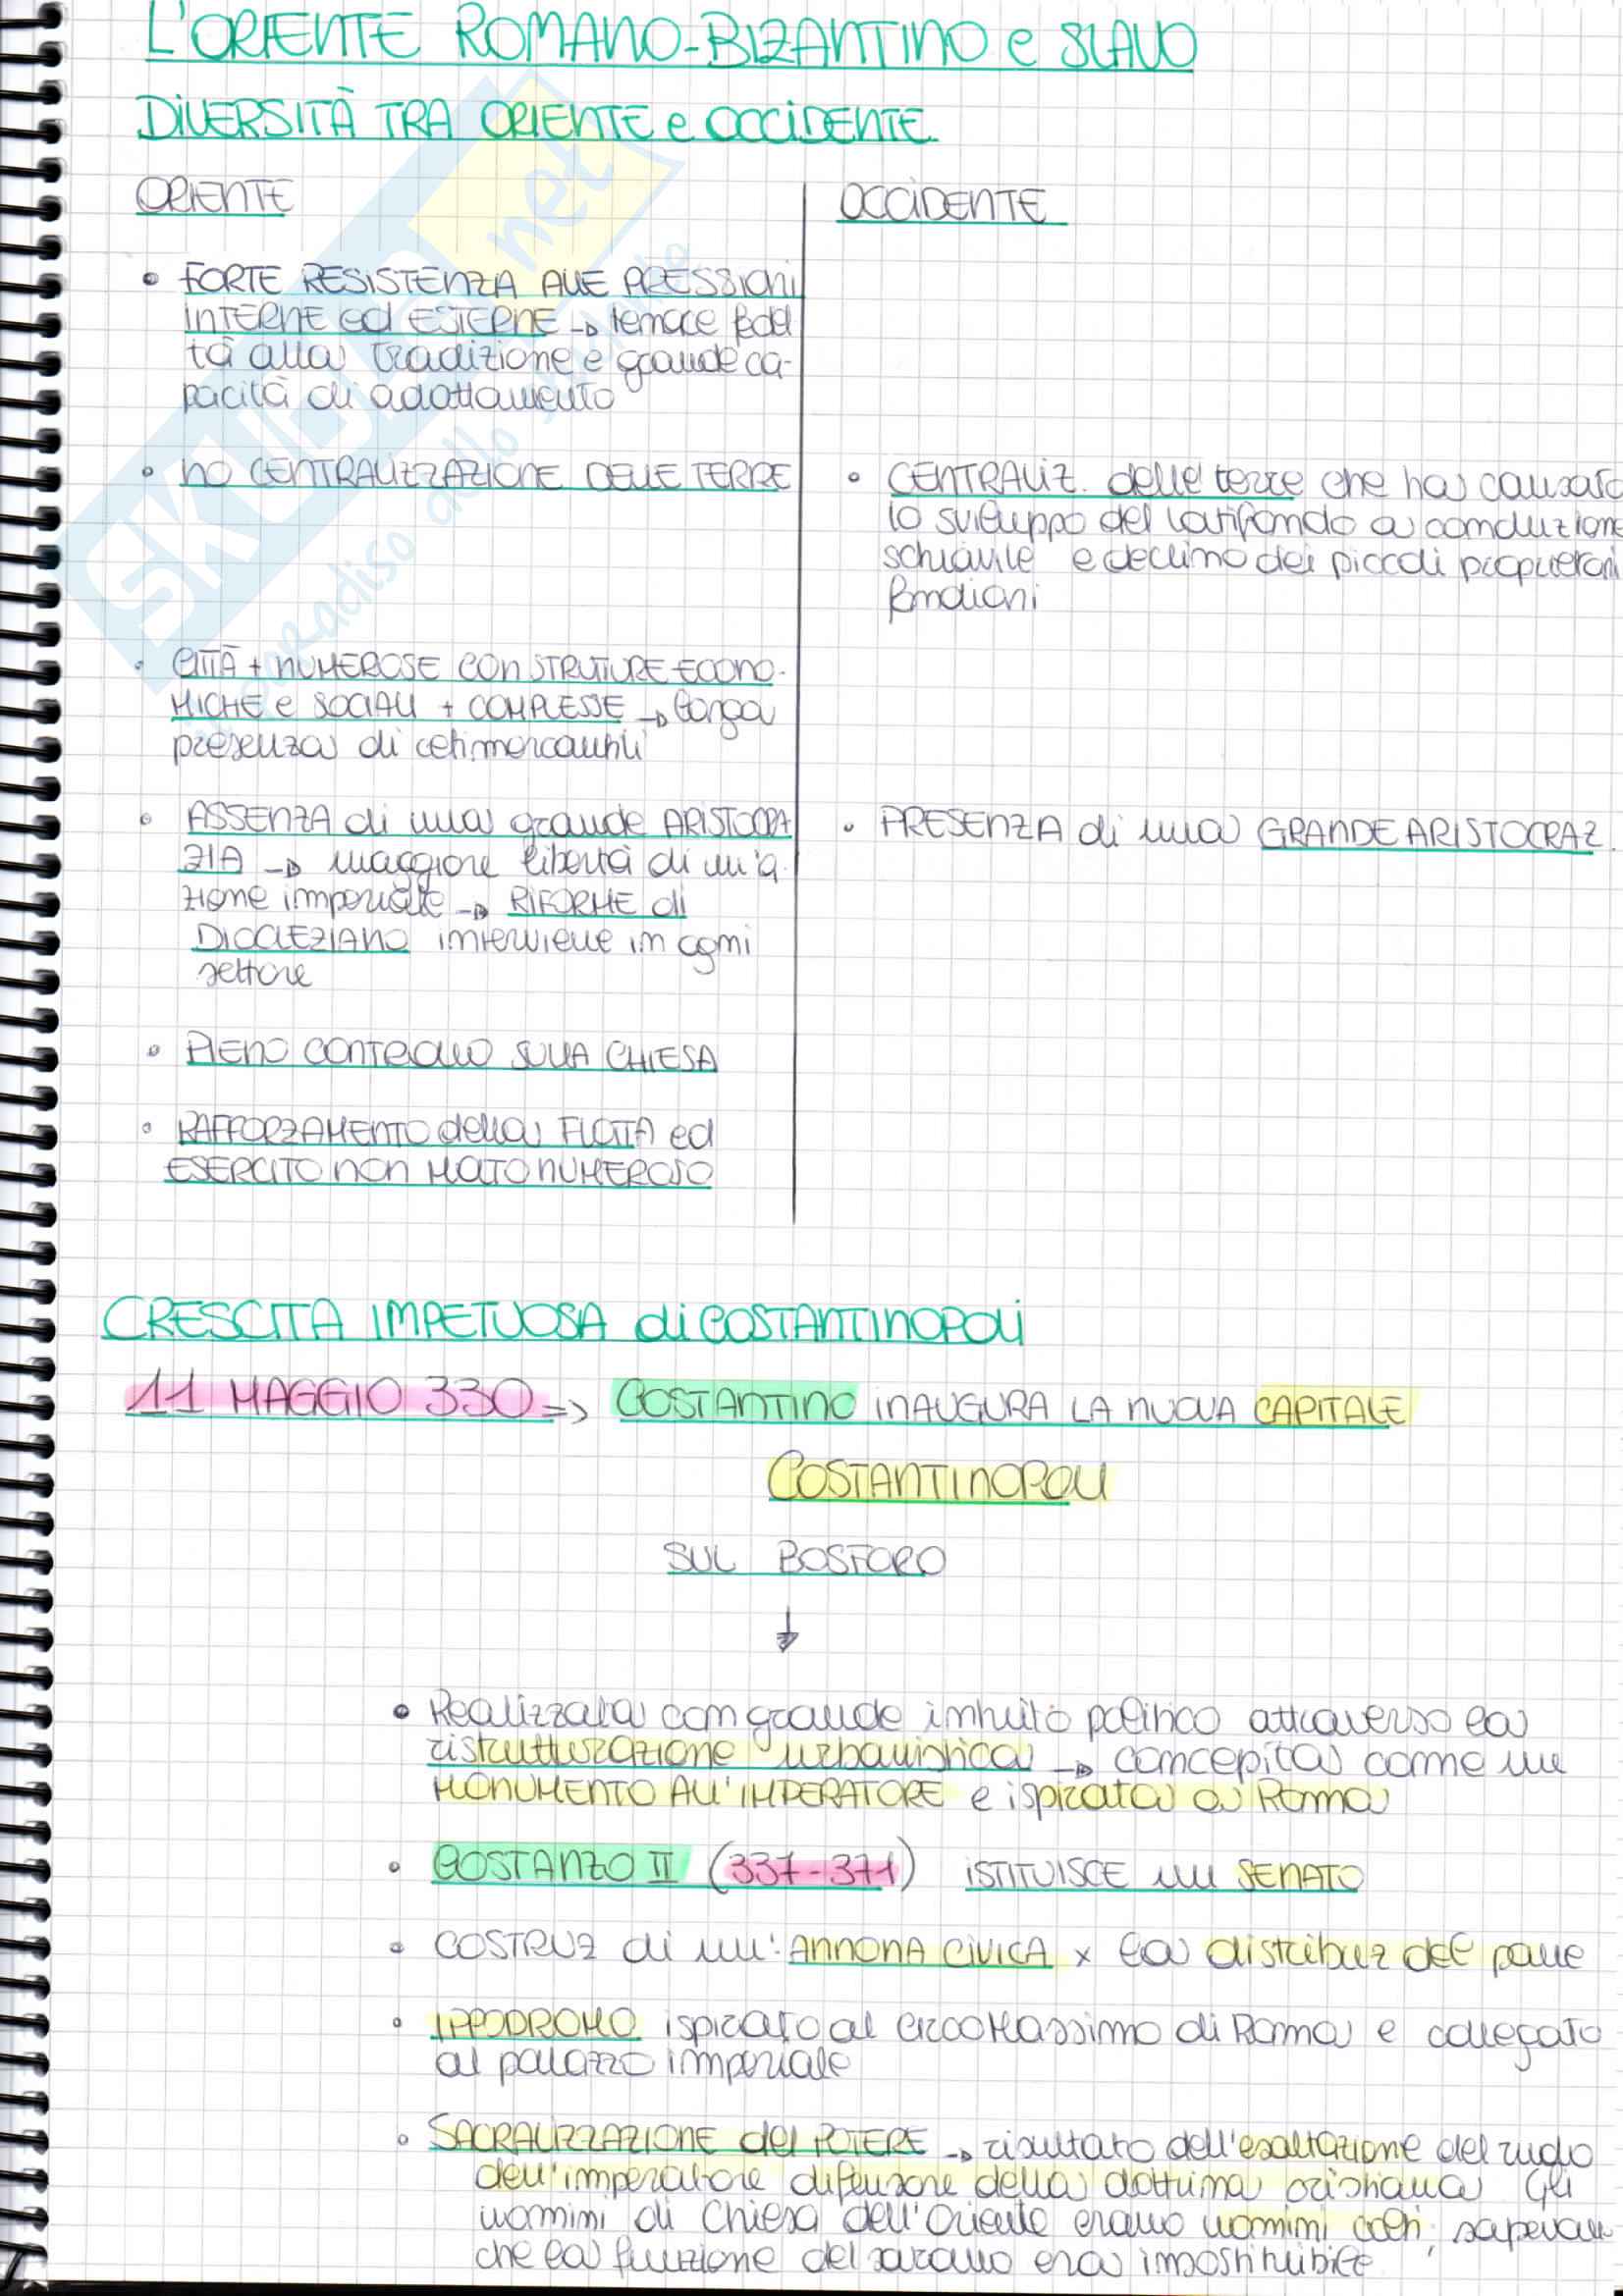 L'ORIENTE ROMANO-BIZANTINO e SLAVO
DIVERSITÀ TRA ORIENTE e OCCIDENTE
ORIENTE
• FORTE RESISTENZA ALLE PRESSIONI
INTERNE ed ESTERNE → tenace fedel
tà alla tradizione e grande ca-
pacità di adattamento
• NO CENTRALIZZAZIONE DELLE TERRE
• CITTÀ + NUMEROSE CON STRUTURE ECONO-
MICHE e SOCIALI + COMPLESSE → larga
presenza di ceti mercantili
• ASSENZA di una grande ARISTOCRA
ZIA → maggiore libertà di in'a
zione imperiale → RIFORME di
DIOCLEZIANO interviene in ogni
settore
• PIENO CONTROLLO SULLA CHIESA
• RAFFORZAMENTO della FLOTTA ed
ESERCITO NON MOLTO NUMEROSO
OCCIDENTE
• CENTRALIZ. delle terre che ha causato
lo sviluppo del latifondo a conduzione
schiavile e declino dei piccoli proprietari
fondiari
• PRESENZA di una GRANDE ARISTOCRAZ.
CRESCITA IMPETUOSA di COSTANTINOPOLI
11 MAGGIO 330 => COSTANTINO INAUGURA LA NUOVA CAPITALE
COSTANTINOPOLI
SUL BOSFORO
↓
• Realizzata con grande intuito politico attraverso la
ristrutturazione urbanistica → concepita come un
MONUMENTO ALL'IMPERATORE e ispirata a Roma
• COSTANZO II (337-371) ISTITUISCE un SENATO
• COSTRUZ di un' ANNONA CIVICA x la distribuz del pane
• IPPODROMO ispirato al circo Massimo di Roma e collegato
al palazzo imperiale
• SACRALIZZAZIONE del POTERE → risultato dell'esaltazione del ruolo
dell'imperatore difensore della dottrina cristiana Gli
uomini di Chiesa dell'Oriente erano uomini colti, sapevan
che la funzione del sovrano era insostituibile
SKUOLA.net
paradiso dello studente